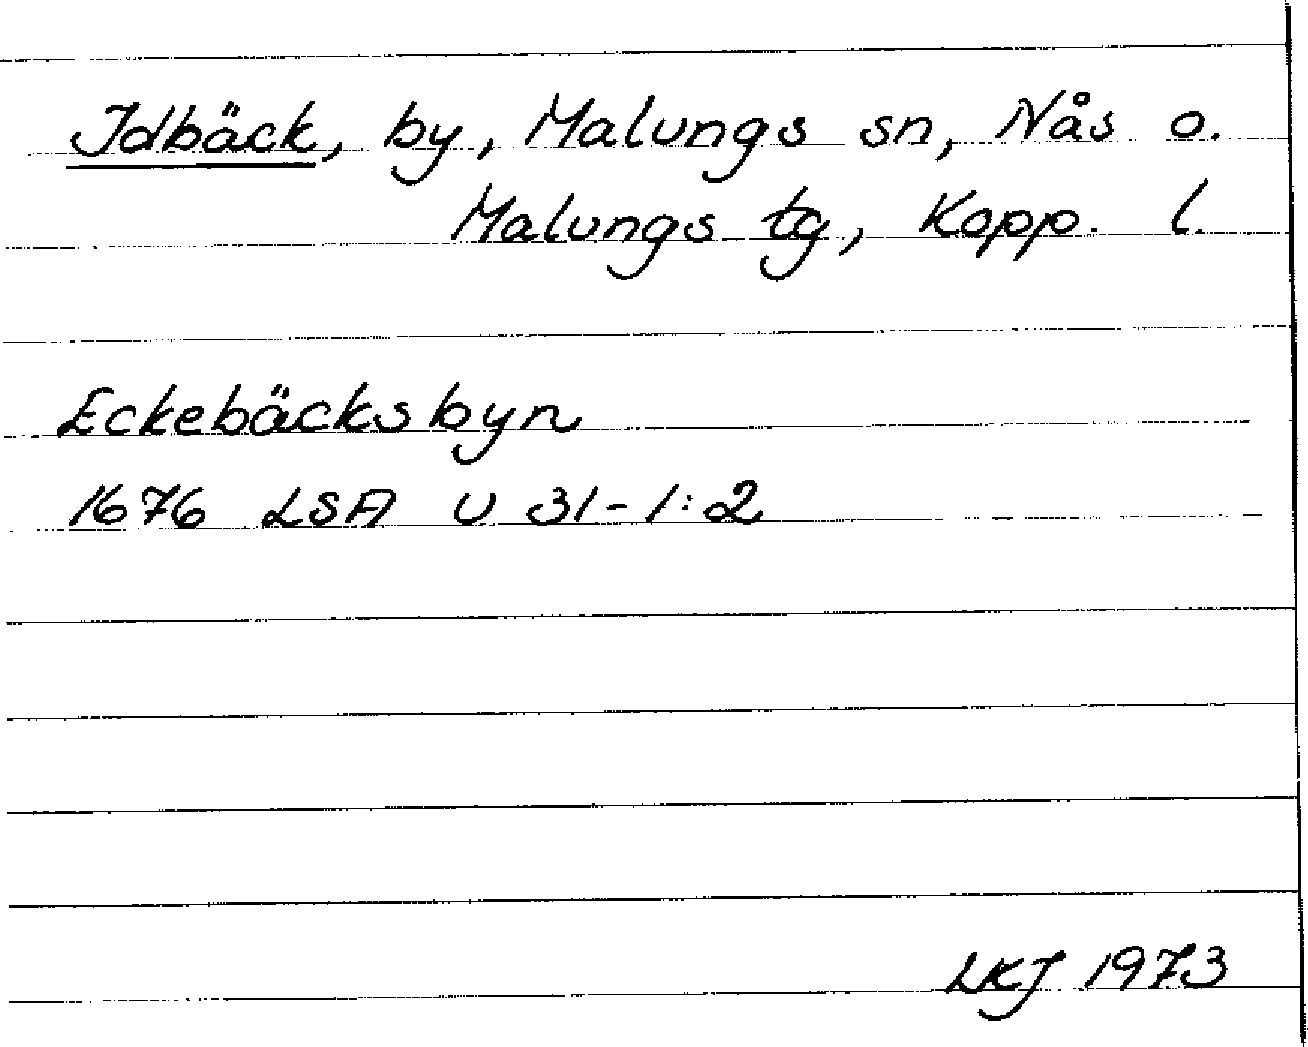 Idbäck, by, Malungs sn, Nås o.
Malungs tg, Kopp. l.
Eckebäcksbyn
1676 LSA U 31-1:2
LKJ 1973